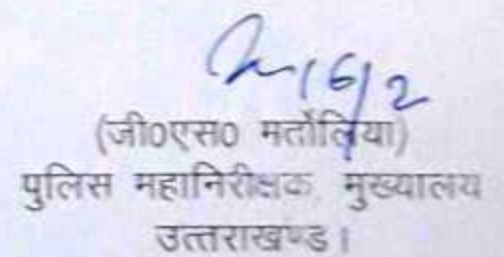 16/2
(जी0एस0 मर्तोलिया)
पुलिस महानिरीक्षक, मुख्यालय
उत्तराखण्ड।